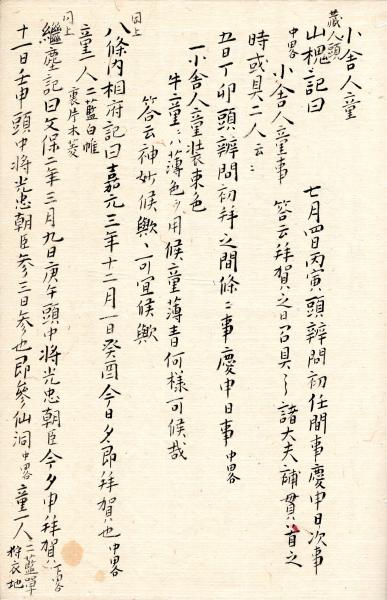 小舎人童
蔵人頭
山槐記曰 七月四日丙寅頭辨問初任間事慶申日次事
中畧 小舎人童事 答云拜賀之日召具之諸大夫補貫首之
時或具二人云々
五日丁卯頭辨問初拜之間條々事慶申日事 中畧
一小舎人童装束色
牛童ハ薄色ヲ用候童薄青何樣可候哉
答云神妙候歟、可宜候歟
同上
八條内相府記曰嘉元三年十二月一日癸酉今日夕郎拜賀也 中畧
童一人 二藍白帷 裏片木菱
同上
繼塵記曰文保二年三月九日庚午頭中将光忠朝臣今夕申拜賀 下畧
十一日壬申頭中将光忠朝臣参三日参也即參仙洞 中畧 童一人 二藍單 狩衣地